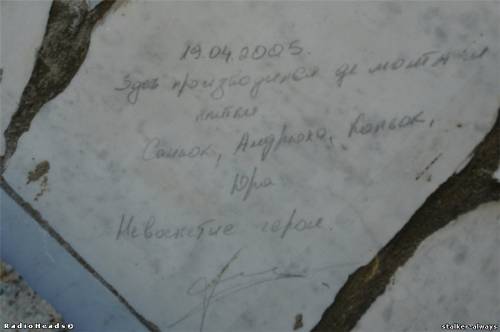 19.04.2005.
Здесь производился демонтаж
плитки
Саньок, Андрюха, Кольок,
Юра
Невоспетые герои.
RadioHeads©
stalker-always